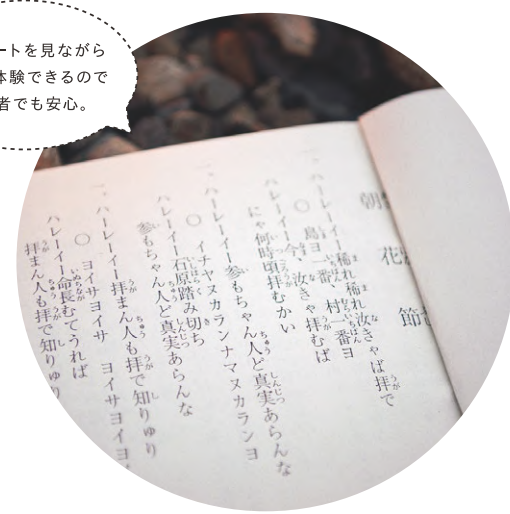 ートを見ながら
体験できるので
者でも安心。
朝
花
節
一、ハレーイー稀れ稀れ汝きゃば拝で
島ヨ一番 村一番ヨ
ハレーイー今汝きゃ拝むば
にゃ何時頃拝むかい
一、ハレーイー参もちゃん人ど真実あらんな
〇 イチヤヌカランナマヌカランヨ
ハレーイー石原踏み切ち
参もちゃん人ど真実あらんな
一、ハレーイー拝まん人も拝で知りゅり
〇 ヨイサヨイサ ヨイサヨイヨイ
ハレーイー命長むてうれば
拝まん人も拝で知りゅり